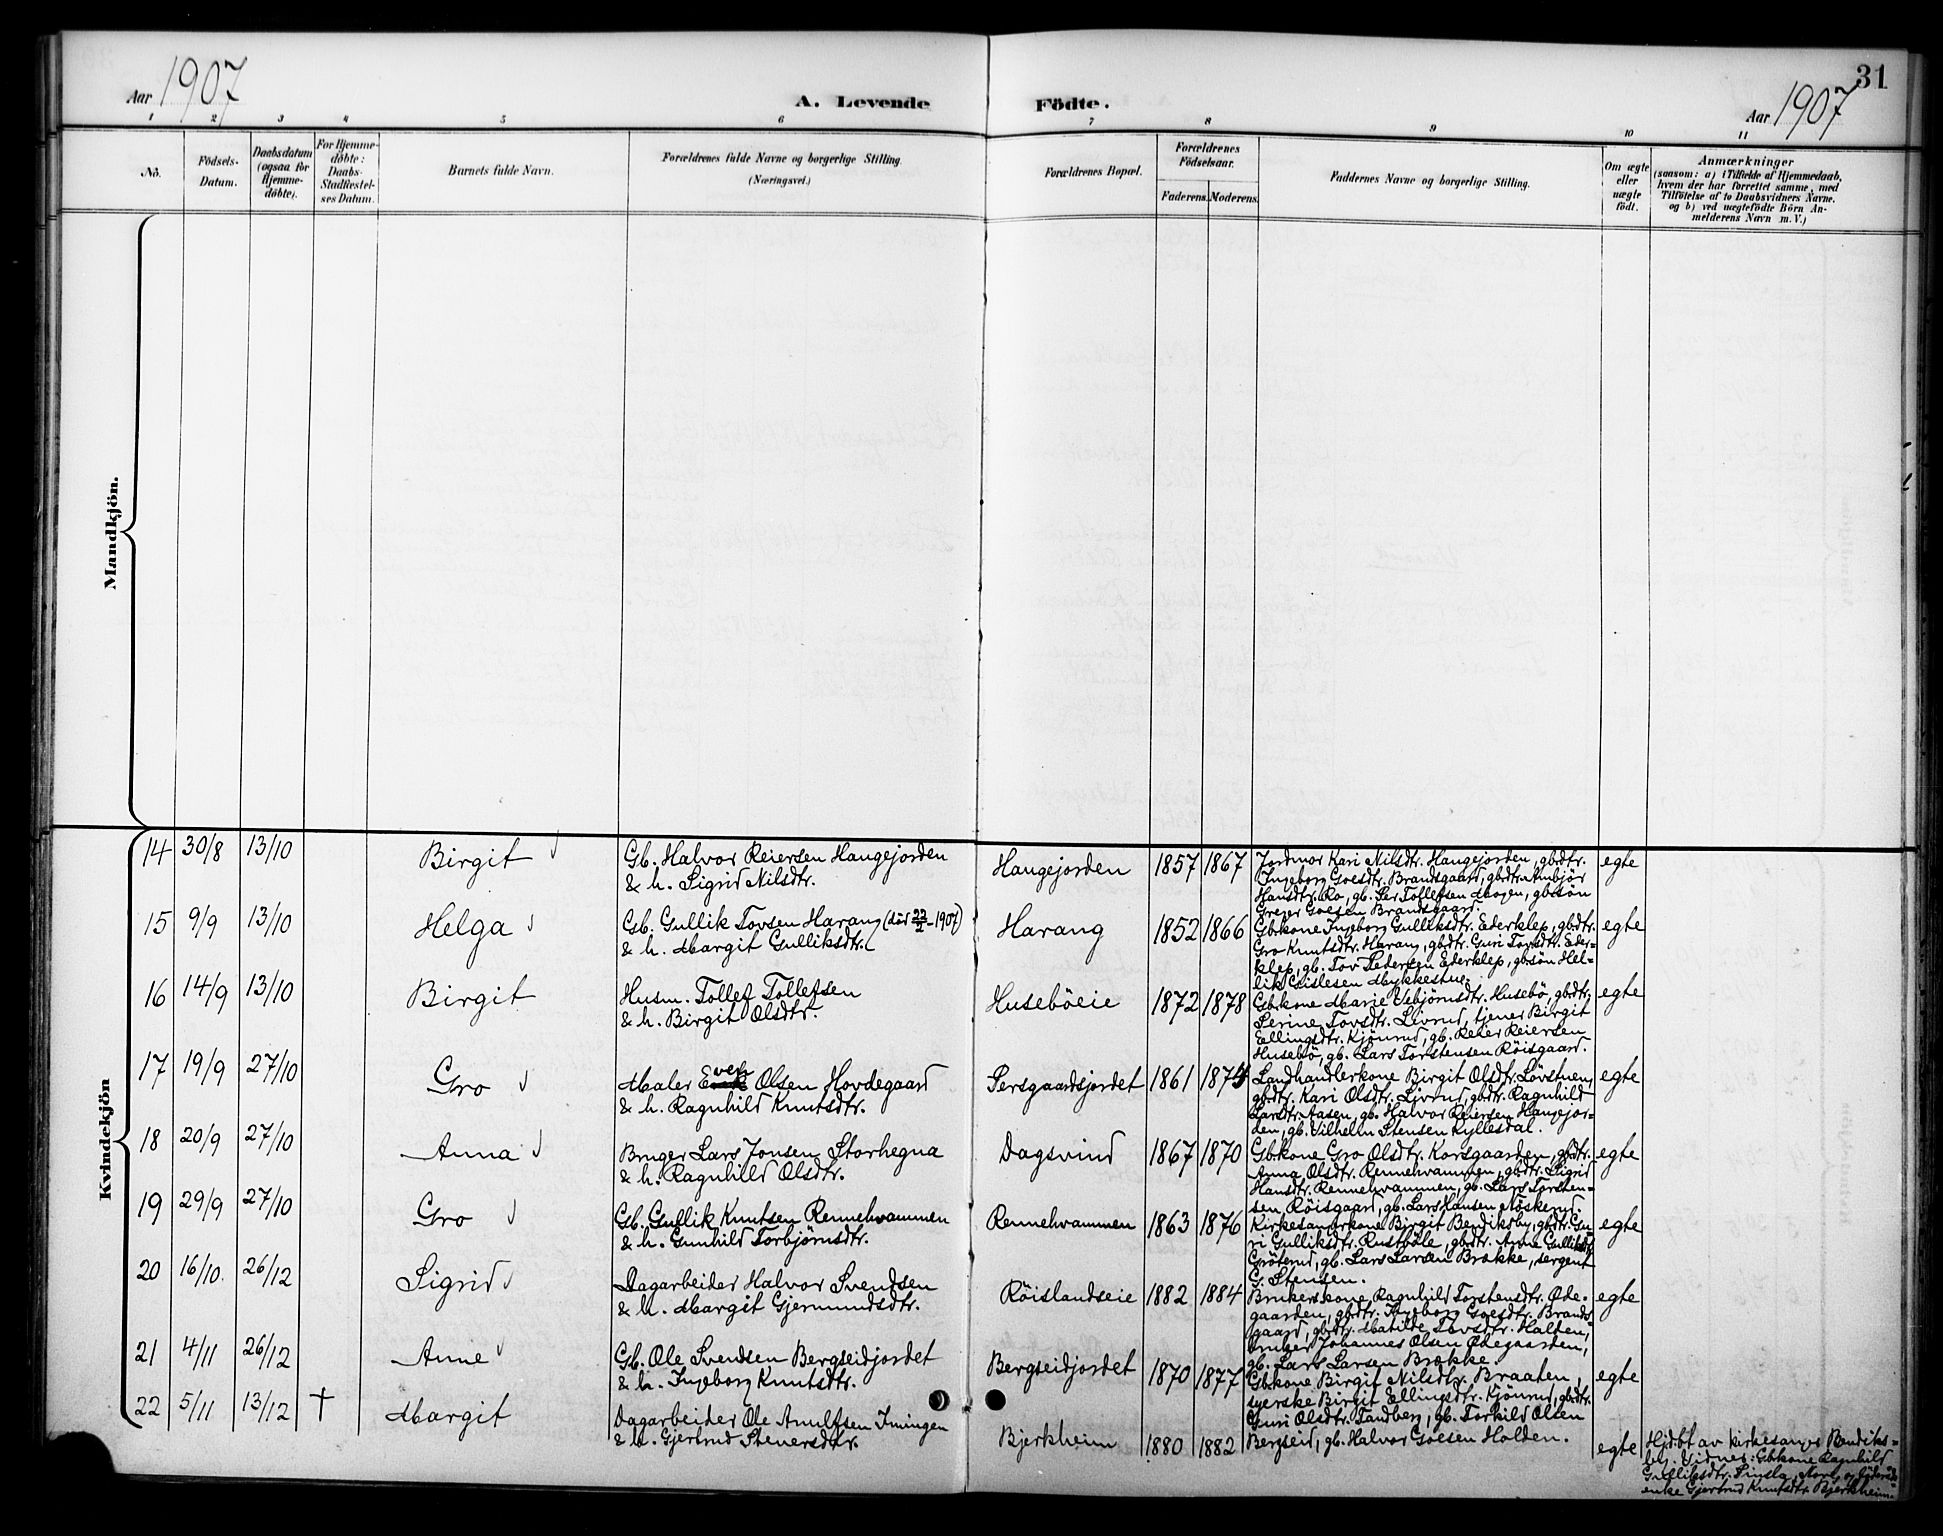 31
Aar 1907
A. Levende
Födte.
Aar 1907
1 2 3 4 5 6 7 8 9 10 11
No.
Födsels-
Datum.
Daabsdatum
(ogsaa for
Hjemme-
døbte).
For Hjemme-
døbte:
Daabs-
Stadfæstel-
ses Datum.
Barnets fulde Navn.
Forældrenes fulde Navne og borgerlige Stilling.
(Næringsvei.)
Forældrenes Bopæl.
Forældrenes
Födselsaar.
Faderens. Moderens.
Faddernes Navne og borgerlige Stilling.
Om ægte
eller
uægte
født.
Anmærkninger
(saasom: a) i Tilfælde af Hjemmedaab,
hvem der har forrettet samme, med
Tilföielse af to Daabsvidners Navne.
og b) ved uægtefödte Börn An-
melderens Navn m. V.)
Mandkjön.
Kvindekjön
14 30/8 13/10 Birgit
Gb. Halvor Reiersen Hangejorden
& h. Sigrid Nilsdtr.
Hangejorden 1857 1867
Jordmor Kari Nilsdtr. Hangejorden, gbdtr.
Ingeborg Goesdtr. Brandsgaard, gbdtr. Ambjör
Hansdtr. Ro, gb. Per Tollefsen Mogen, gbsön
Greger Goesen Brandsgaard.
egte
15 9/9 13/10 Helga
Gb. Gullik Tovsen Harang (död 22/2 - 1907)
& h. Margit Gulliksdtr.
Harang 1852 1866
Gbkone Ingeborg Gulliksdtr. Ederklep, gbdtr.
Gro Knutsdtr. Harang, gbdtr. Guri Tovsdtr. Eder-
klep, gb. Tov Pedersen Ederklep, gbsön Hel-
lik Gislesen Mykkestue.
egte
16 14/9 13/10 Birgit
Husm. Tollef Tollefsen
& h. Birgit Olsdtr.
Huseböeie 1872 1878
Gbkone Marie Vebjörnsdtr. Husebö, gbdtr.
Serine Tovsdtr. Livrud, tjener Birgit
Ellingsdtr. Kjönrud, gb. Reier Reiersen
Husebö, gb. Lars Torstensen Röisgaard.
egte
17 19/9 27/10 Gro
Maler Even Olsen Hovdegaard
& h. Ragnhild Knutsdtr.
Persgaardsjordet 1861 1874
Landhandlerkone Birgit Olsdtr. Lövstuen,
gbdtr. Kari Olsdtr. Livrud, gbdtr. Ragnhild
Larsdtr. Aasen, gb. Halvor Reiersen Hangejor-
den, gb. Vilhelm Stensen Kyllesdal.
egte
18 20/9 27/10 Anna
Bruger Lars Jonsen Storhegna
& h. Ragnhild Olsdtr.
Dagsvind 1867 1870
Gbkone Gro Olsdtr. Korsgaarden, gbdtr.
Anna Olsdtr. Rennehvammen, gbdtr. Sigrid
Hansdtr. Rennehvammen, gb. Lars Torsten-
sen Röisgaard, gb. Lars Hansen
egte
19 29/9 27/10 Gro
Gb. Gullik Knutsen Rennehvammen
& h. Gunhild Torbjörnsdtr.
Rennehvammen 1863 1876
Kirkesangerkone Birgit Bendiksby, gbdtr. Gu-
ri Gulliksdtr. Rustböle, gbdtr. Anne Gulliksdtr.
Gröterud, gb. Lars Larsen Brække, sergent
G. Stensen.
egte
20 16/10. 26/12 Sigrid
Dagarbeider Halvor Svendsen
& h. Margit Gjermundsdtr.
Röislandseie 1882 1884
Brukerskone Ragnhild Torstensdtr. Øde-
gaarden, gbdtr. Ingeborg Goesdtr. Brands-
gaard, gbdtr. Matilde Tovsdtr. Halten,
bruger Johannes Olsen Ødegaarden,
gb. Lars Larsen Brække.
egte
21 4/11 26/12 Anne
Gb. Ole Svendsen Bergseidjordet
& h. Ingeborg Knutsdtr.
Bergseidjordet 1870 1877
Gbkone Birgit Nilsdtr. Braaten,
syerske Birgit Ellingsdtr. Kjönrud, gbdtr.
Guri Olsdtr. Tandberg, gb. Torkild Olsen
Bergseid, gb. Halvor Goesen Holden.
egte
22 5/11 13/12 † Margit
Dagarbeider Ole Arnulfsen Imingen
& h. Gjertrud Stenersdtr.
Bjerkheim 1880 1882
egte
Hjdbt av kirkesanger Bendiks-
by. Vidner: Gbkone Ragnhild
Gulliksdtr. nore, og
enke Gjertrud Knutsdtr. Bjerkheim.